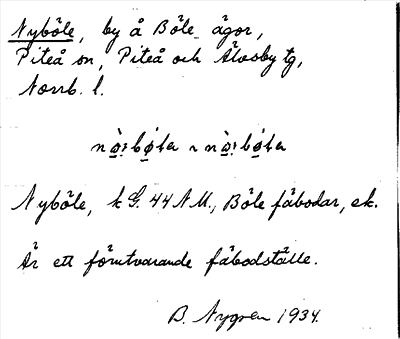 Nyböle, by å Böle ägor,
Piteå sn, Piteå och Älvsby tg,
Norrb. l.
Nyböle, k G. 44 NM., Böle fäbodar, ek.
Är ett förutvarande fäbodställe.
B. Nygren 1934.